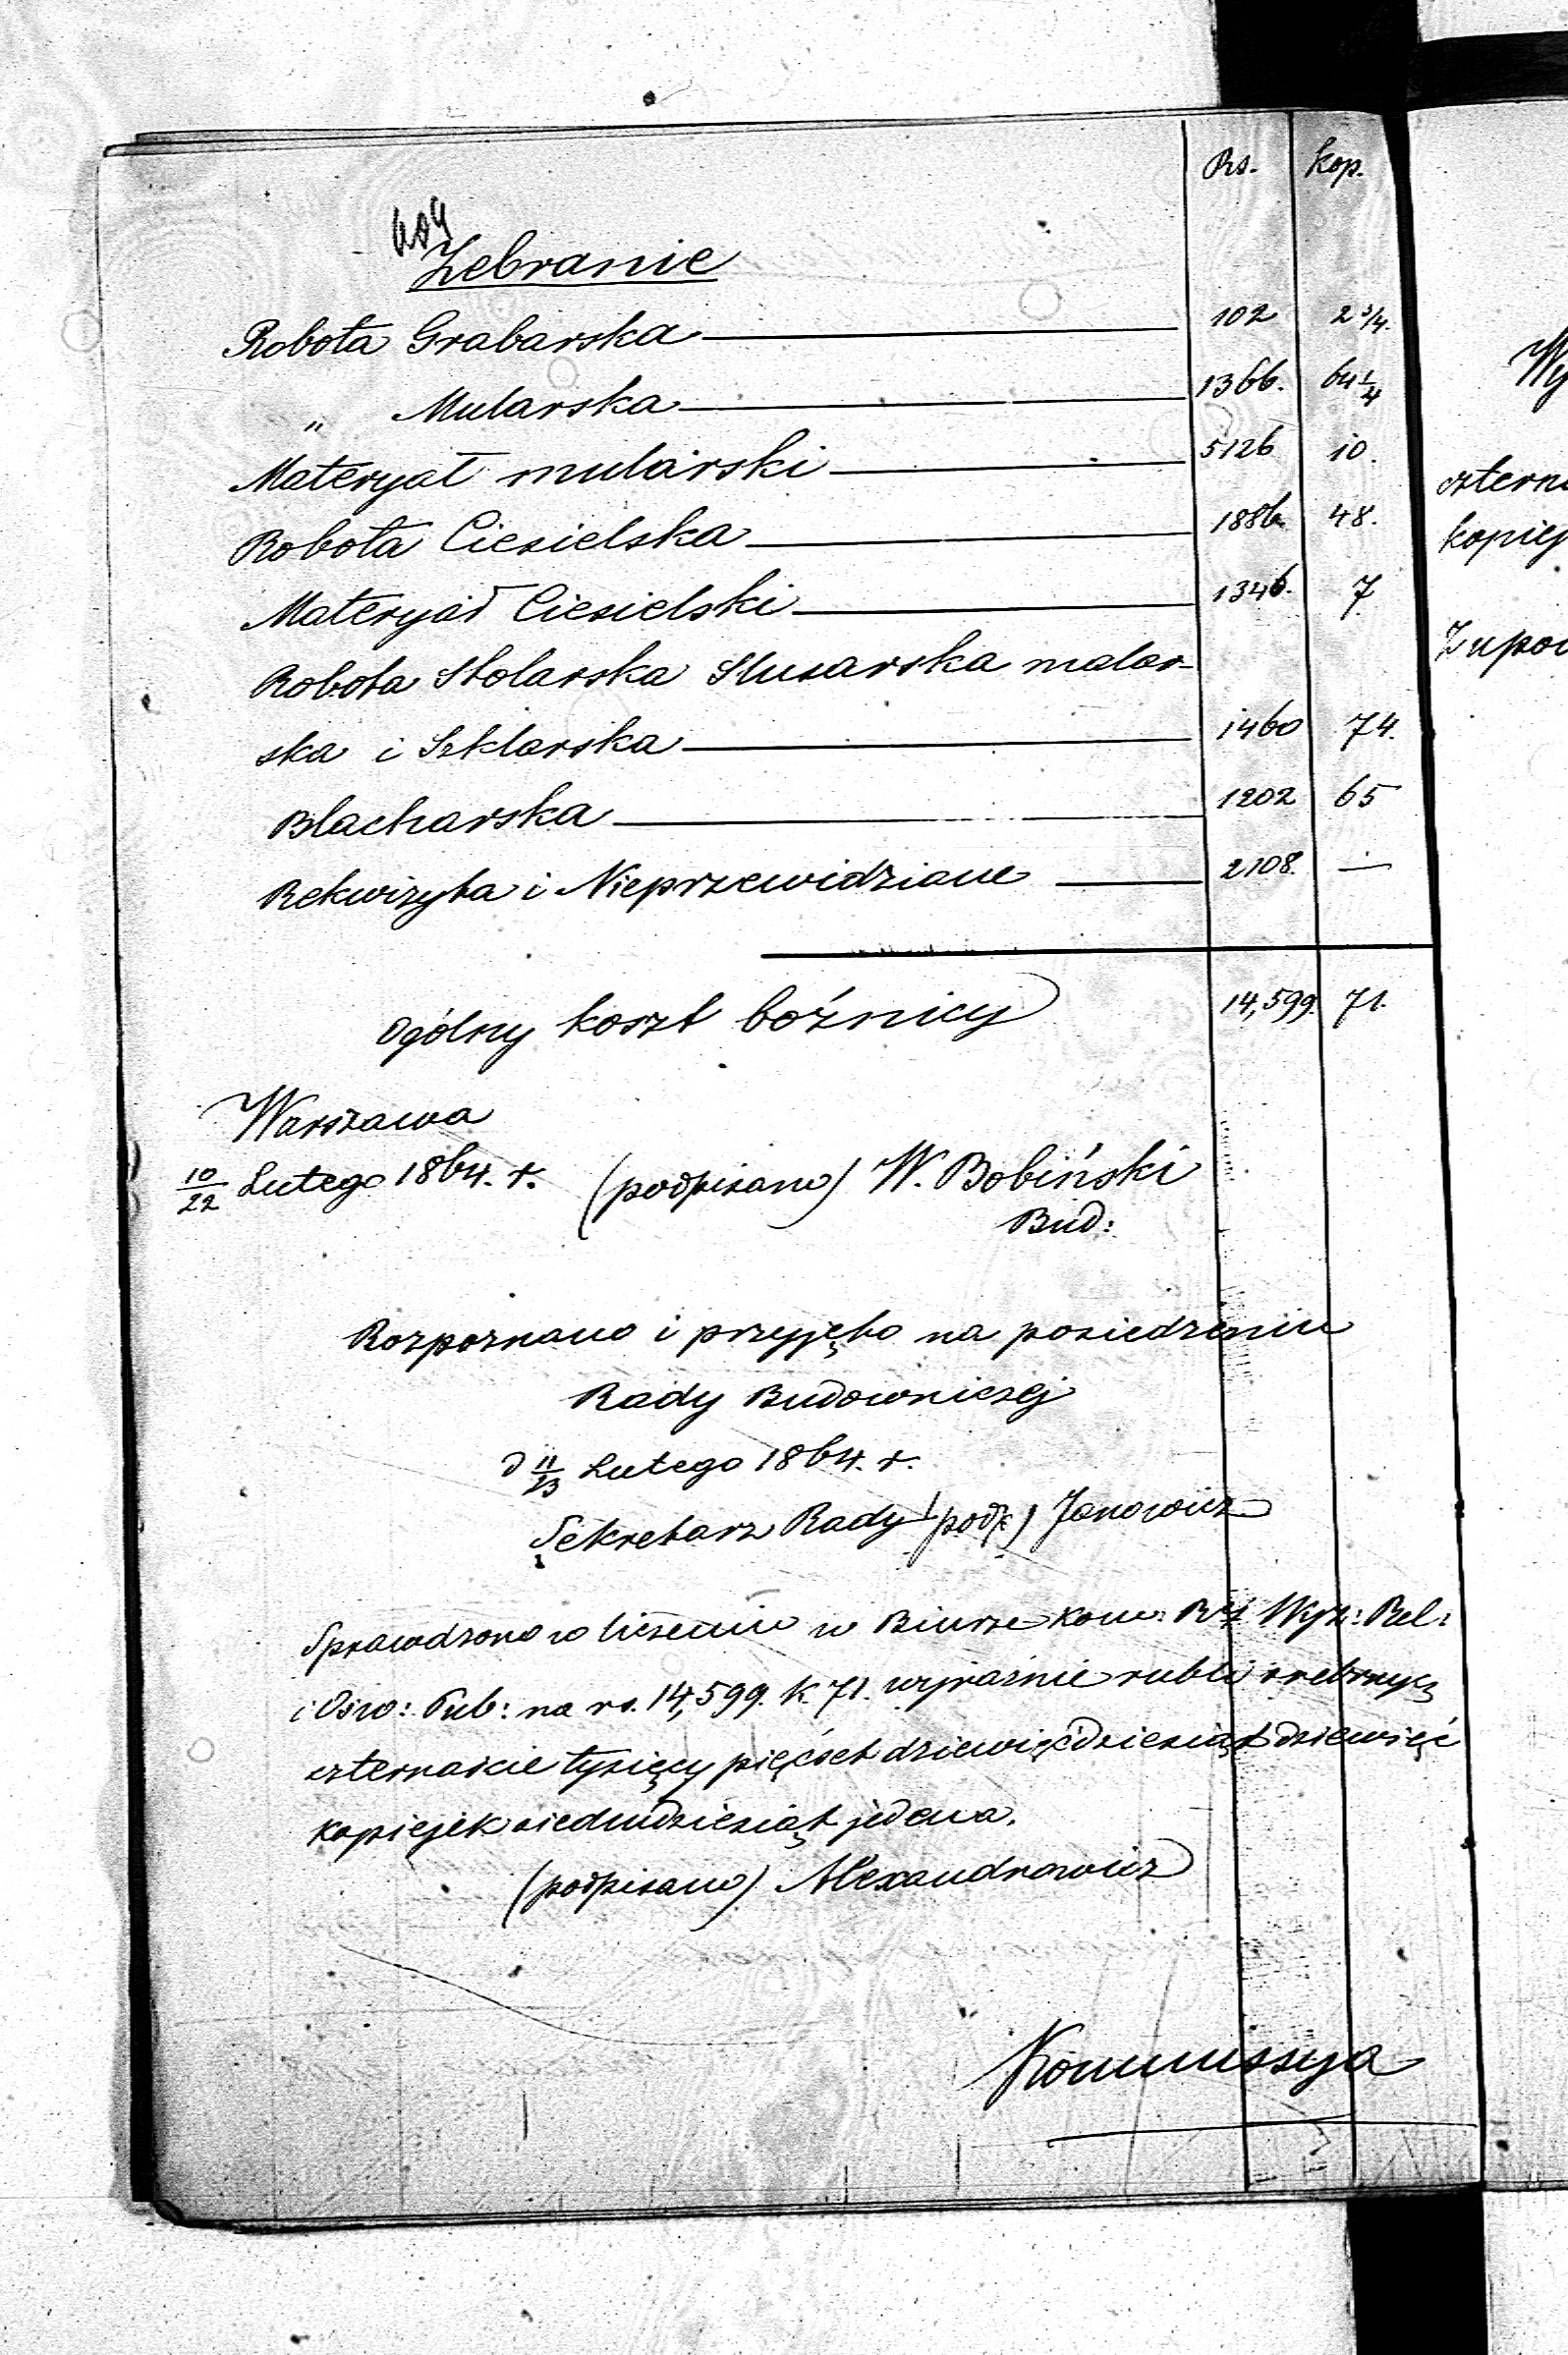 Rs. kop.
Zebranie
Robota Grabarska 102 2 3/4.
" Mularska 1366. 64 1/4
Materyał mularski 5126 10.
Robota Ciesielska 1886. 48.
Materyał Ciesielski 1346. 7
Robota Stolarska Slusarska malar-
ska i Szklarska 1460 74.
Blacharska 1202 65
Rekwizyta i Nieprzewidziane 2108. —
Ogólny koszt bożnicy 14,599. 71.
Warszawa
10/22 Lutego 1864. r. (podpisano) W. Bobiński
Bud:
Rozpoznano i przyjęto na posiedzeniu
Rady Budowniczej
d 11/23 Lutego 1864. r.
Sekretarz Rady (podp:) Janowicz
Sprawdzono w liczeniu w Biurze Kom: Rz: Wyzn: Rel:
i Ośw: Pub: na rs. 14,599. k. 71. wyraźnie rubli srebrnych
czternaście tysięcy pięćset dziewięćdziesiąt dziewięć
kopiejek siedmdziesiąt jedena.
(podpisano) Alexandrowicz
Kommissya
Wy
cztern
kopiej
Z upow